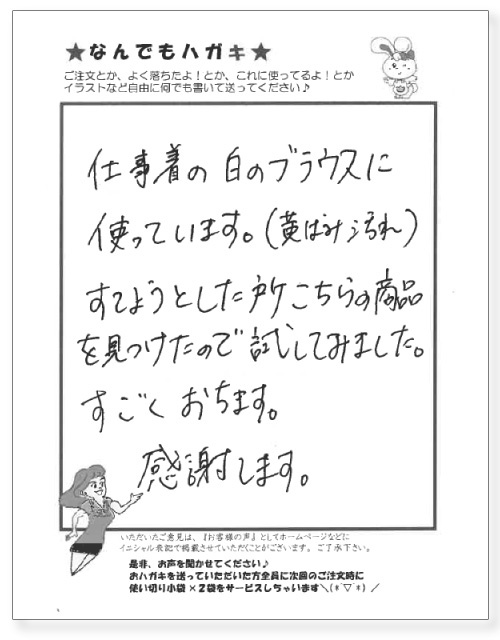 ★なんでもハガキ★
ご注文とか、よく落ちたよ！とか、これに使ってるよ！とか
イラストなど自由に何でも書いて送ってください♪
仕事着の白のブラウスに
使っています。（黄ばみ汚れ）
すてようとした所こちらの商品
を見つけたので試してみました。
すごくおちます。
感謝します。
いただいたご意見は、『お客様の声』としてホームページなどに
イニシャル表記で掲載させていただくことがございます。ご了承下さい。
是非、お声を聞かせてください♪
おハガキを送っていただいた方全員に次回のご注文時に
使い切り小袋×2袋をサービスしちゃいます＼(*´▽`*)／